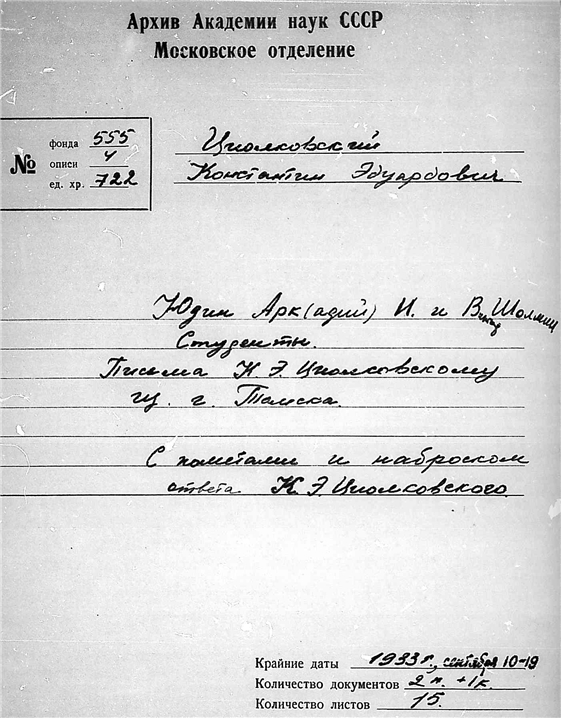 Архив Академии наук СССР
Московское отделение
№
фонда 555
описи 4
ед. хр. 722
Циолковский
Константин Эдуардович
Юдин Арк(адий) И. и В.
Студенты.
Письма К.Э. Циолковскому
из г. Томска.
С пометами и наброском
ответа К.Э. Циолковского.
Крайние даты 1933 г., сентября 10-19
Количество документов 2 п. + 1 к.
Количество листов 15.